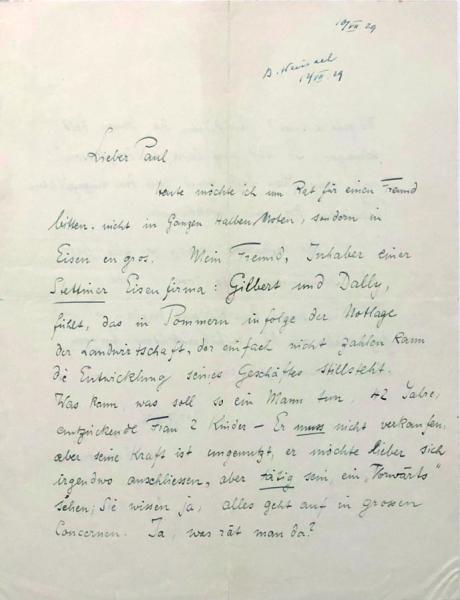 10/VII. 29
12/VII. 29
Lieber Paul,
heute möchte ich um Rat für einen Freund
bitten. nicht in Ganzen Halben Noten, sondern in
Eisen en gros. Mein Freund, Inhaber einer
Stettiner Eisenfirma: Gilbert und Dally,
fühlt, das in Pommern infolge der Notlage
der Landwirtschaft, der einfach nicht zahlen kann
die Entwicklung seines Geschäftes stillsteht.
Was kann, was soll so ein Mann tun, 42 Jahre,
entzückende Frau 2 Kinder – Er muss nicht verkaufen,
aber seine Kraft ist ungenutzt, er möchte lieber sich
irgendwo anschliessen, aber tätig sein, ein "Vorwärts"
sehen; Sie wissen ja, alles geht auf in grossen
Concernen. Ja, was rät man da?